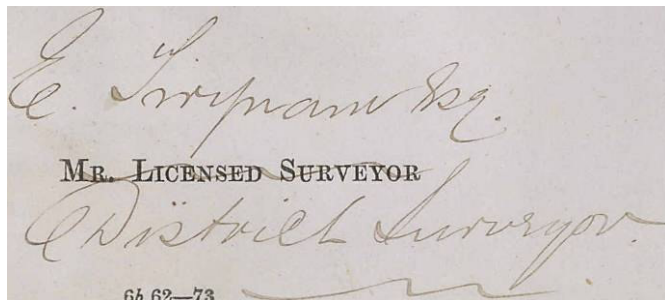 E. Twynam Esq.
MR. LICENSED SURVEYOR
District Surveyor.
6b 62—73